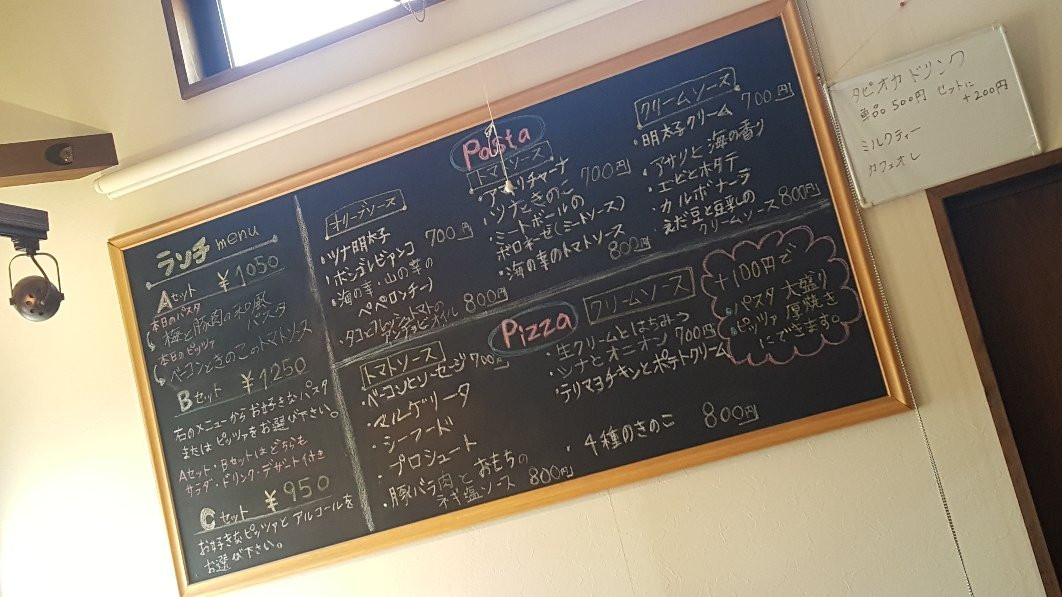 ランチ menu
Aセット ¥1050
本日のパスタ
梅と豚肉の和風
パスタ
本日のピッツァ
ベーコンときのこのトマトソース
Bセット ¥1250
右のメニューからお好きなパスタ
またはピッツァをお選び下さい。
Aセット・Bセットはどちらも
サラダ・ドリンク・デザート付き
Cセット ¥950
お好きなピッツァとアルコールを
お選び下さい。
Pasta
オリーブソース
・ツナ明太子 700円
・ボンゴレビアンコ
・海の幸、山の幸の
ペペロンチーノ
・タコとフレッシュトマトの
アンチョビオイル 800円
トマトソース
・アマトリチャーナ 700円
・ツナときのこ
・ミートボールの
ボロネーゼ(ミートソース)
・海の幸のトマトソース
800円
クリームソース
・明太子クリーム 700円
・アサリと海の香り
・エビとホタテ
・カルボナーラ
・えだ豆と豆乳の
クリームソース 800円
Pizza
トマトソース
・ベーコンとソーセージ 700円
・マルゲリータ
・シーフード
・プロシュート
・豚バラ肉とおもちの
ネギ塩ソース 800円
クリームソース
・生クリームとはちみつ
・ツナとオニオン 700円
・テリマヨチキンとポテトクリーム
・4種のきのこ 800円
+100円で
パスタ 大盛り
ピッツァ 厚焼き
にできます。
タピオカドリンク
単品500円 セットに
+200円
ミルクティー
カフェオレ